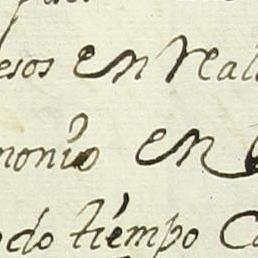 esos en real
monio en
odo tiempo Ca